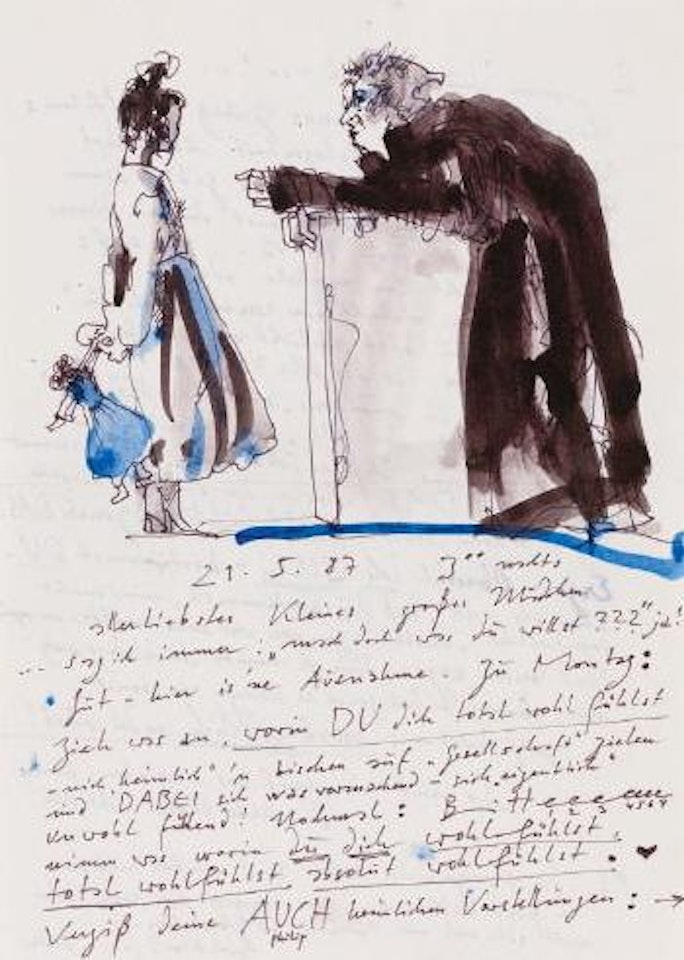 21. 5. 87 3°° nachts
allerliebstes Kleines, großes Mädchen
... sag ich immer: „mach doch was du willst ???" ja!
gut – hier is 'ne Ausnahme. Zu Montag:
Zieh was an, worin DU dich total wohl fühlst
– nich „heimlich" 'n bischen auf „Gesellschaft" ziehen
und DABEI sich was vormachend – sich „eigentlich"
unwohl fühlend! Nochmal: Bitteeeeeee
1 2 3 4 5 6 7
nimm was worin du dich wohlfühlst,
total wohlfühlst absolut wohlfühlst.
Vergiß deine AUCH heimlichen Vorstellungen: →